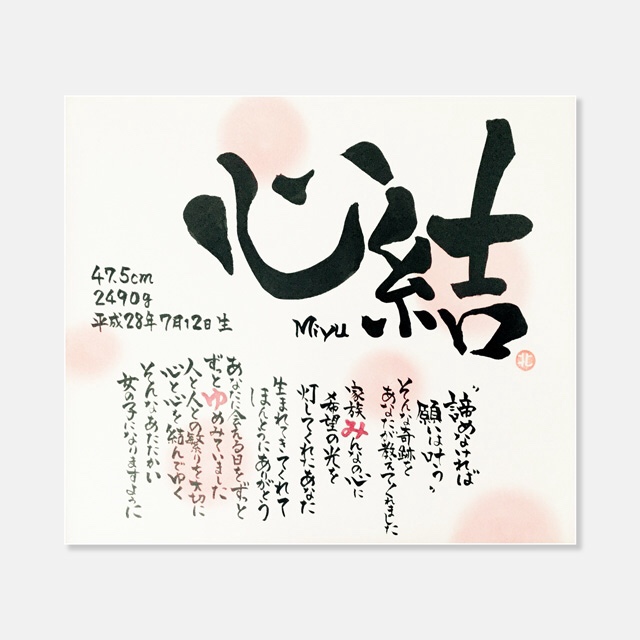 心結
Miyu
47.5cm
2490g
平成28年7月12日生
"諦めなければ
願いは叶う"
そんな奇跡を
あなたが教えてくれました
家族みんなの心に
希望の光を
灯してくれたあなた
生まれてきてくれて
ほんとうにありがとう
あなたに会える日をずっと
ずっとゆめみていました
人と人との繋りを大切に
心と心を結んでゆく
そんなあたたかい
女の子になりますように
北